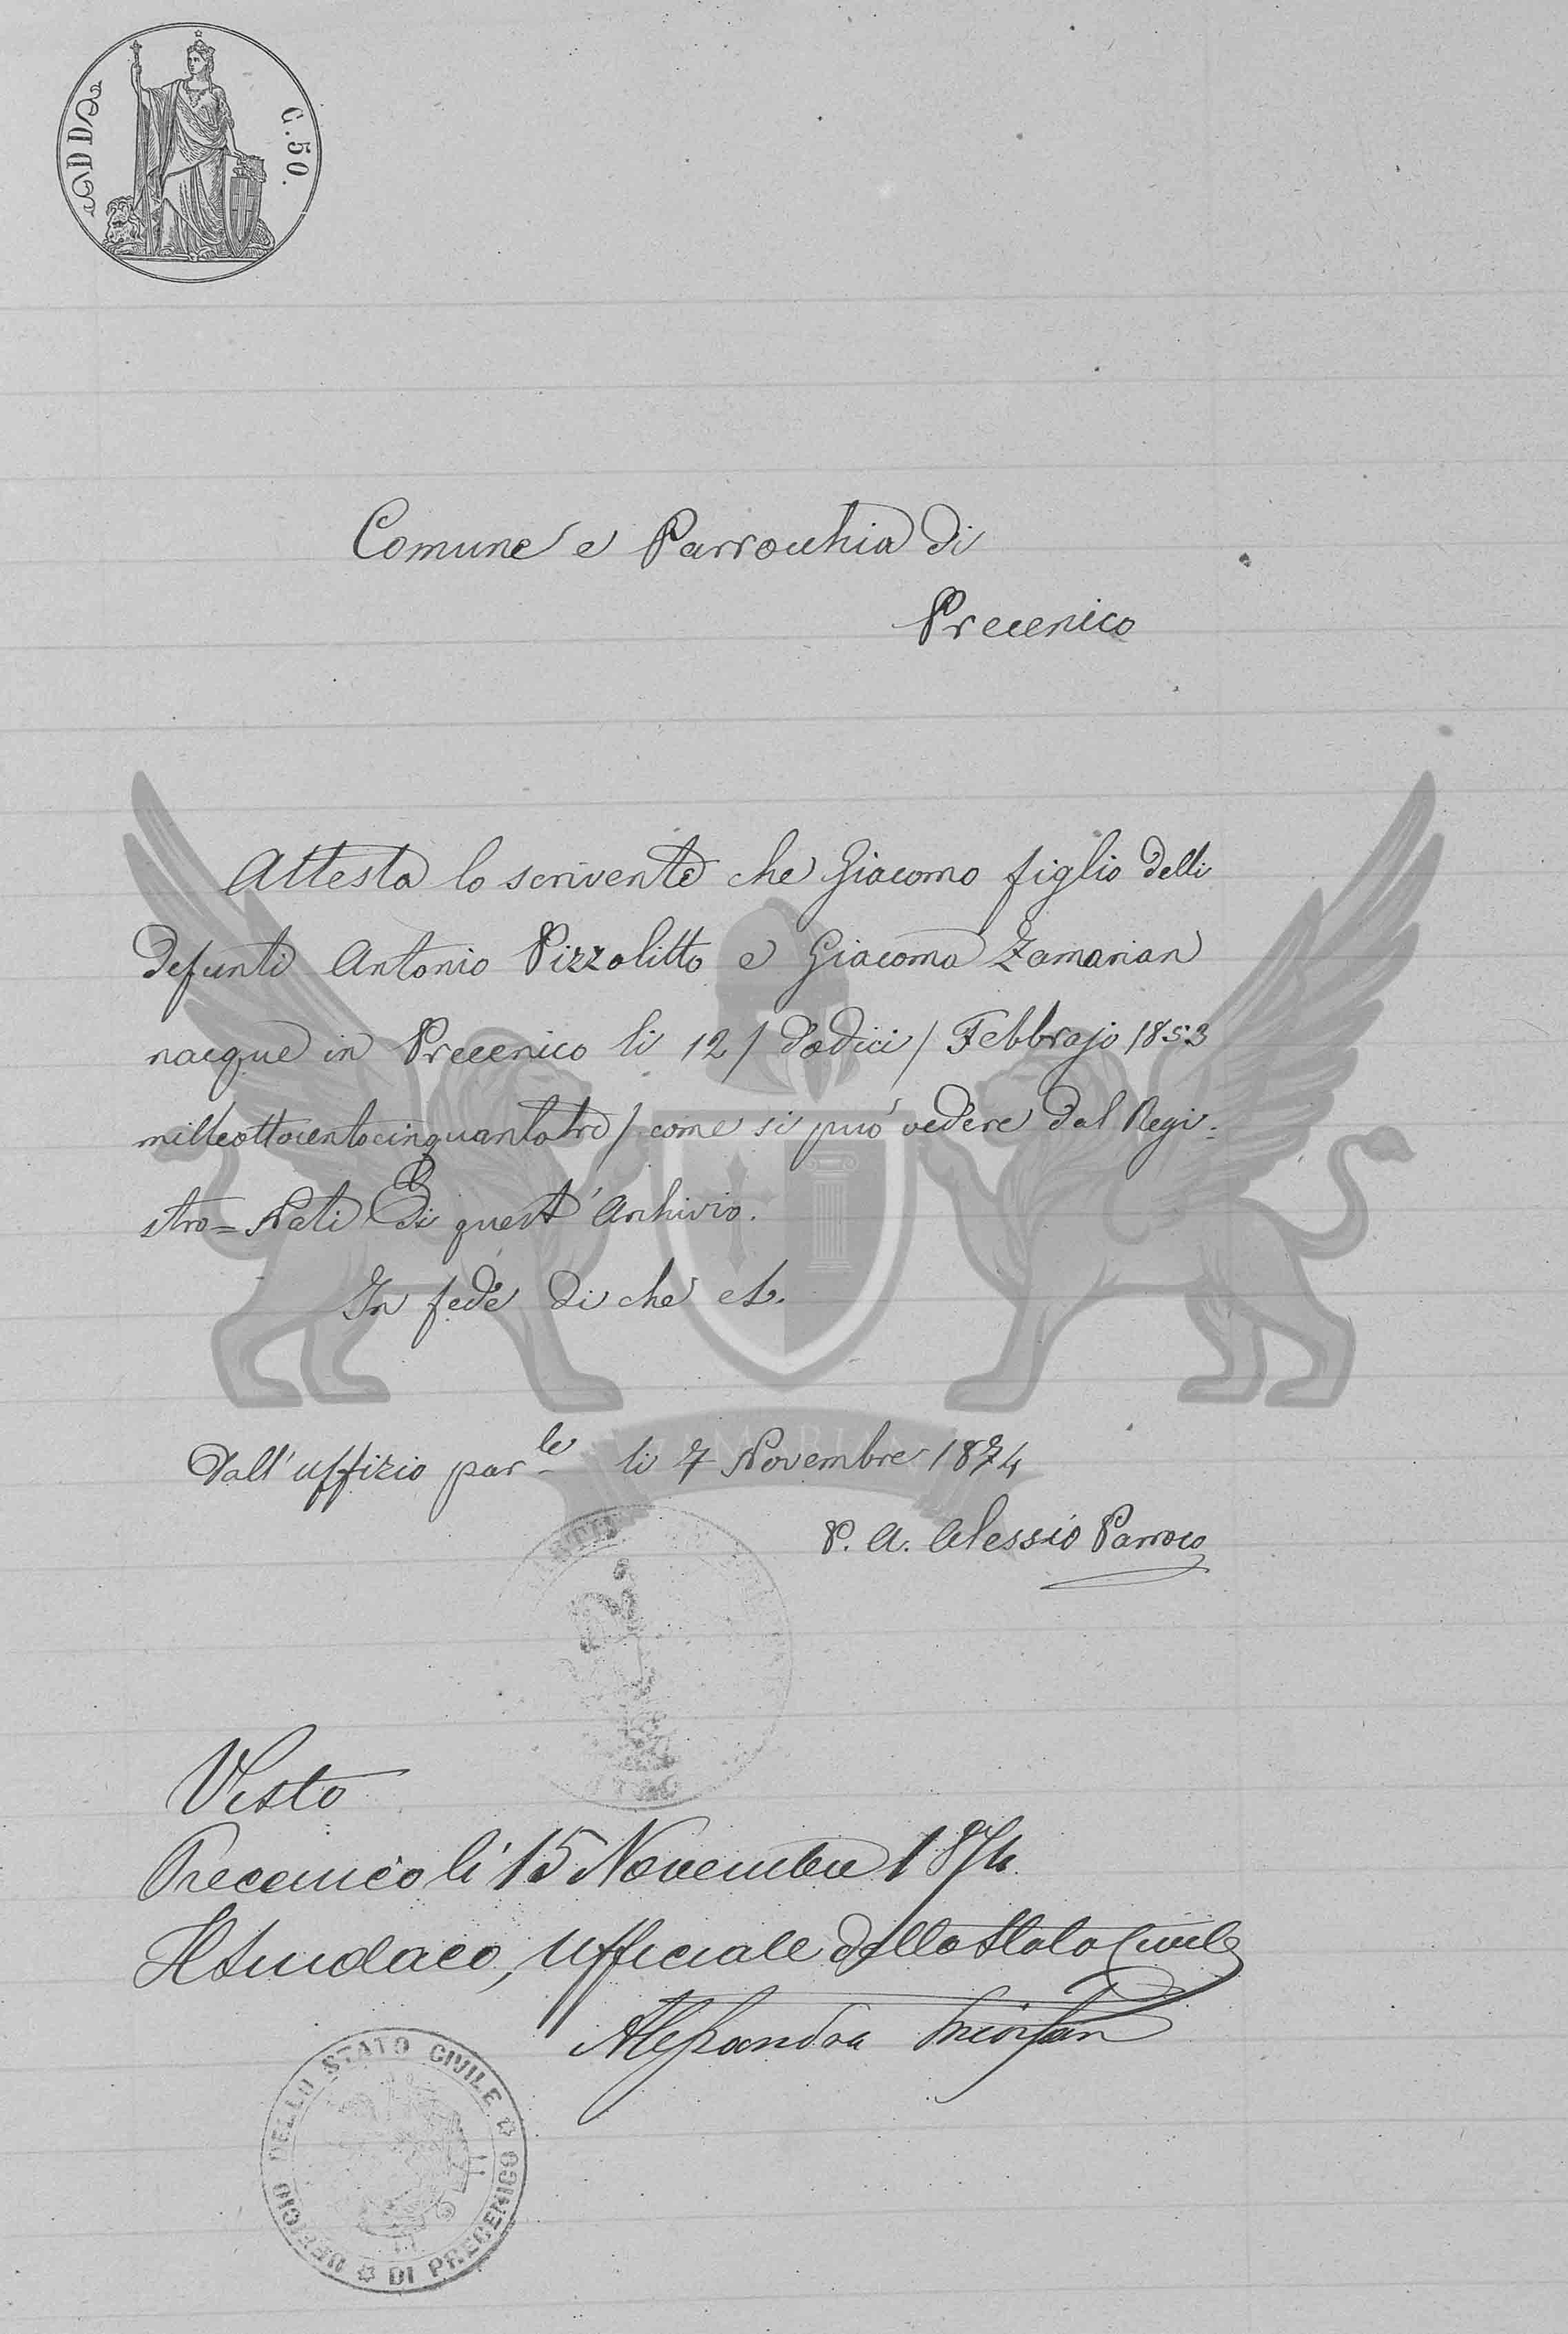 C. 50.
Comune e Parrocchia di
Precenico
Attesta lo scrivente che Giacomo figlio delli
defunti Antonio Pizzolitto e Giacoma Zamarian
nacque in Precenico li 12 / dodici / Febbrajo 1853
milleottocentocinquantatre / come si può vedere dal Regi-
stro = Nati di quest' Archivio.
In fede di che et.
Dall' uffizio par.le li 7 Novembre 1874
P. A. Alessio Parroco
Visto
Precenico li 15 Novembre 1874.
Il Sindaco, Ufficiale dello Stato Civile
Alessandro
UFFICIO DELLO STATO CIVILE
DI PRECENICO